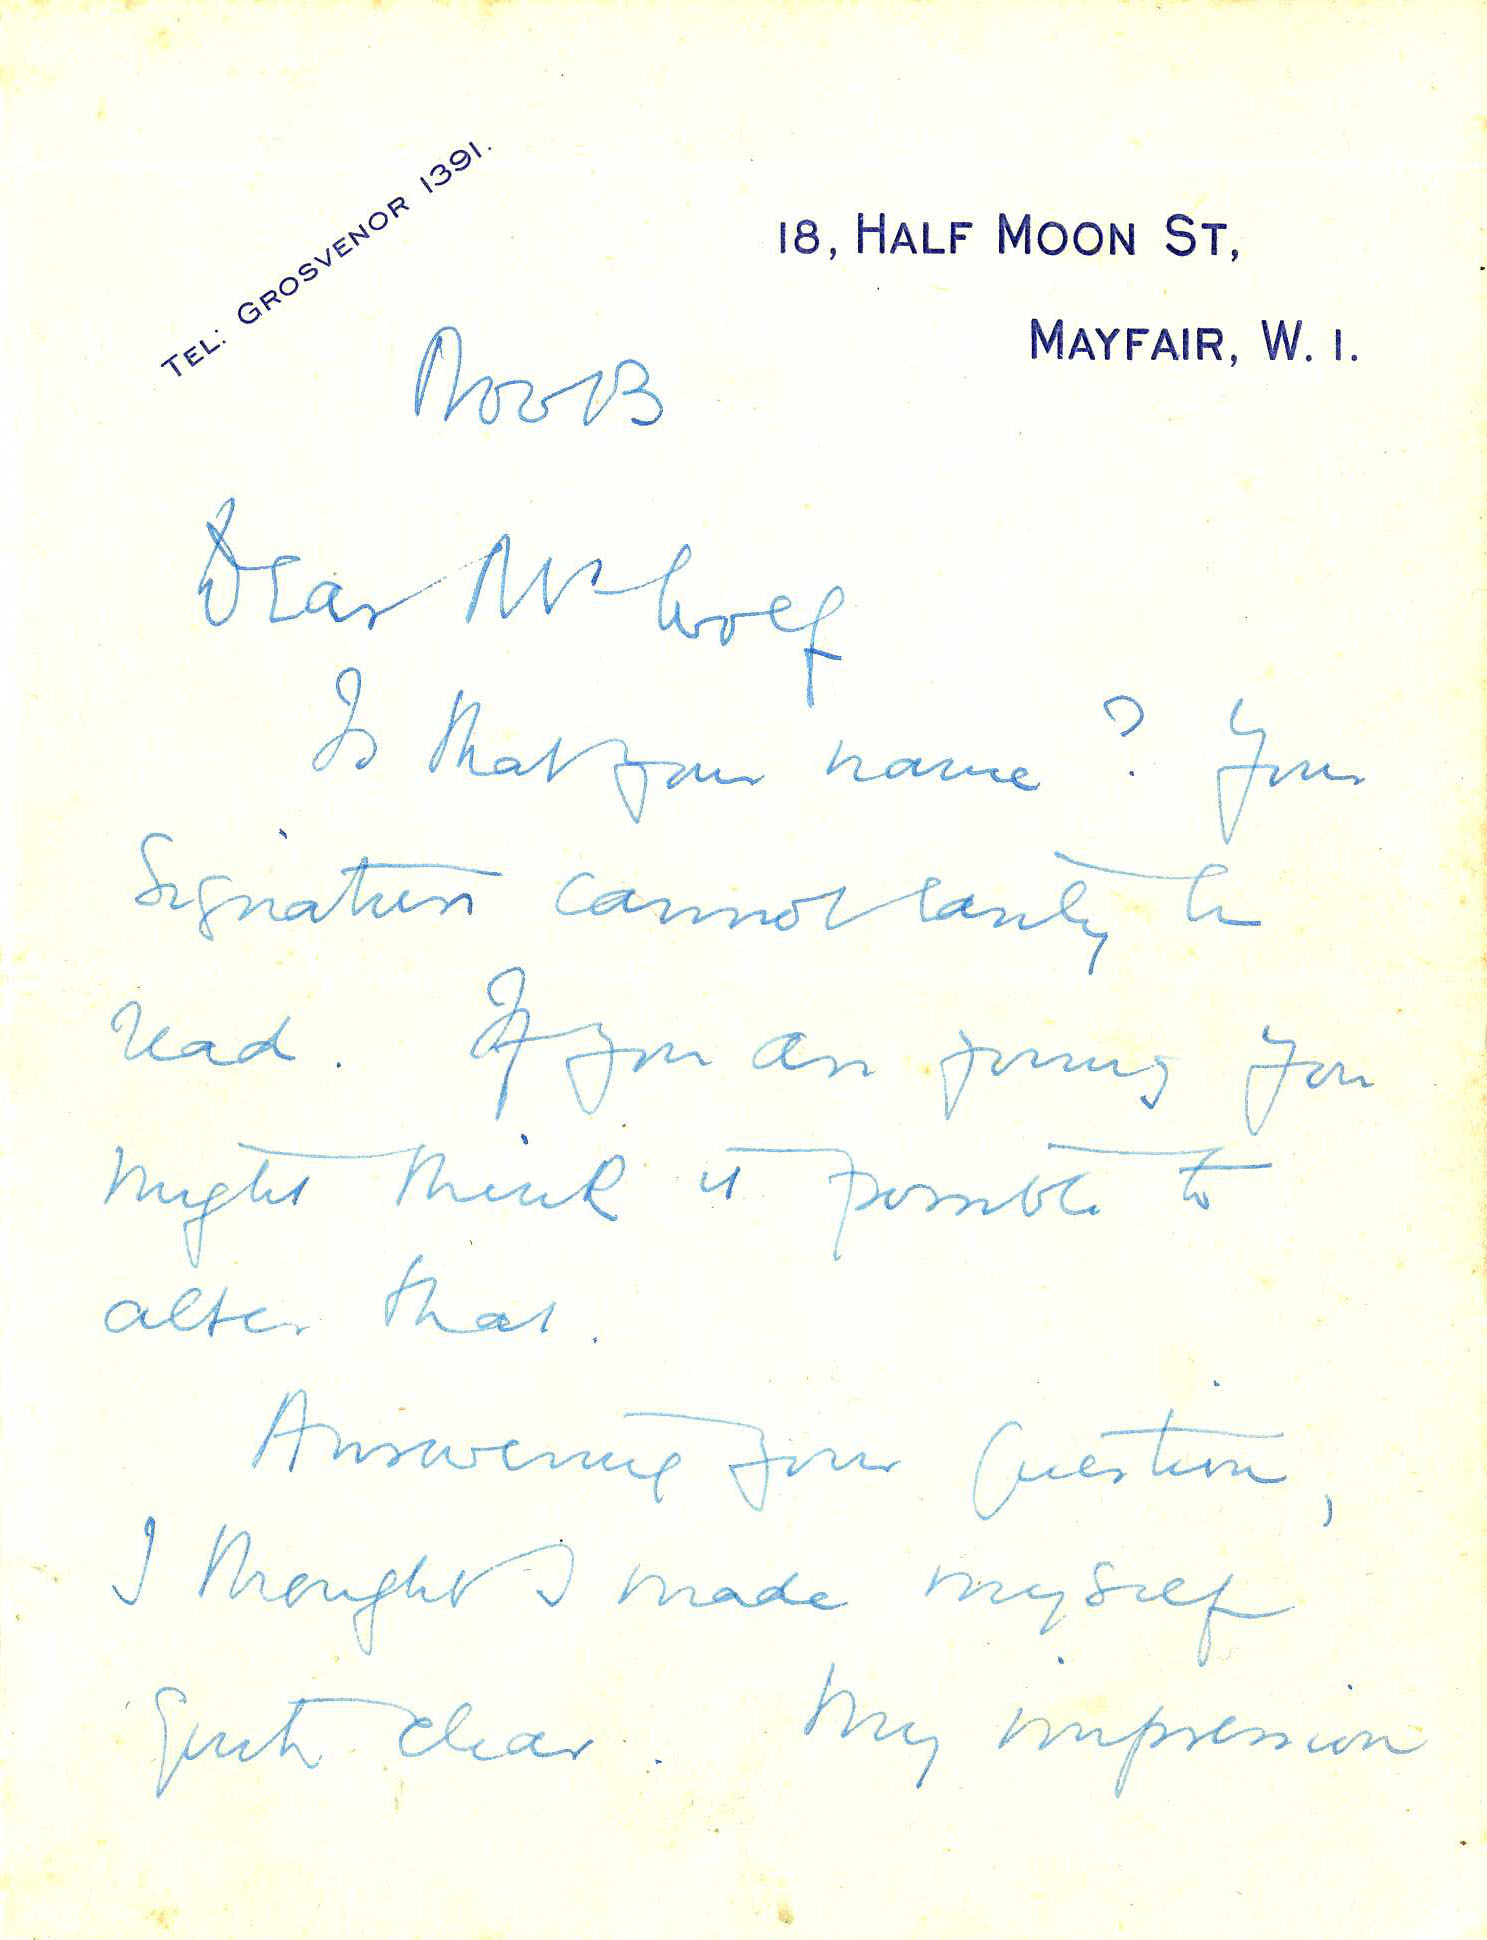 TEL: GROSVENOR 1391.
18, HALF MOON ST,
MAYFAIR, W. 1.
Nov 13
Dear Mr Wolf
Is that your name? Your
signature cannot easily be
read. If you are young you
might think it possible to
alter that.
Answering your question,
I thought I made myself
quite clear. My impression